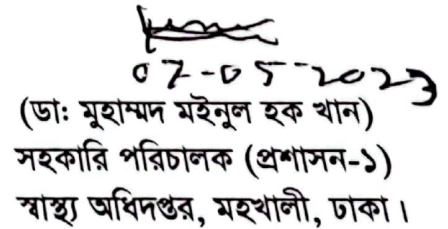 07-05-2023
(ডা: মুহাম্মদ মইনুল হক খান)
সহকারি পরিচালক (প্রশাসন-১)
স্বাস্থ্য অধিদপ্তর, মহখালী, ঢাকা।